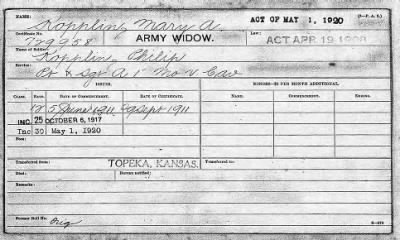 NAME: Kopplin, Mary A.
ACT OF MAY 1, 1920
Certificate No.
729958
ARMY WIDOW.
Law:
ACT APR 19 1908
Name of Soldier:
Kopplin, Philip
Service:
Pt & Sgt A 1" Mo. V. Cav
ISSUES.
MINORS—$2 PER MONTH ADDITIONAL.
CLASS. RATE. DATE OF COMMENCEMENT. DATE OF CERTIFICATE. NAME. COMMENCEMENT. ENDING.
12 5 June 1911 29 Sept 1911
INC. 25 OCTOBER 6, 1917
Inc 30 May 1, 1920
Paid to
Transferred from
TOPEKA, KANSAS.
Transferred to:
Died:
Bureau notified:
Remarks:
Former Roll No.
Orig